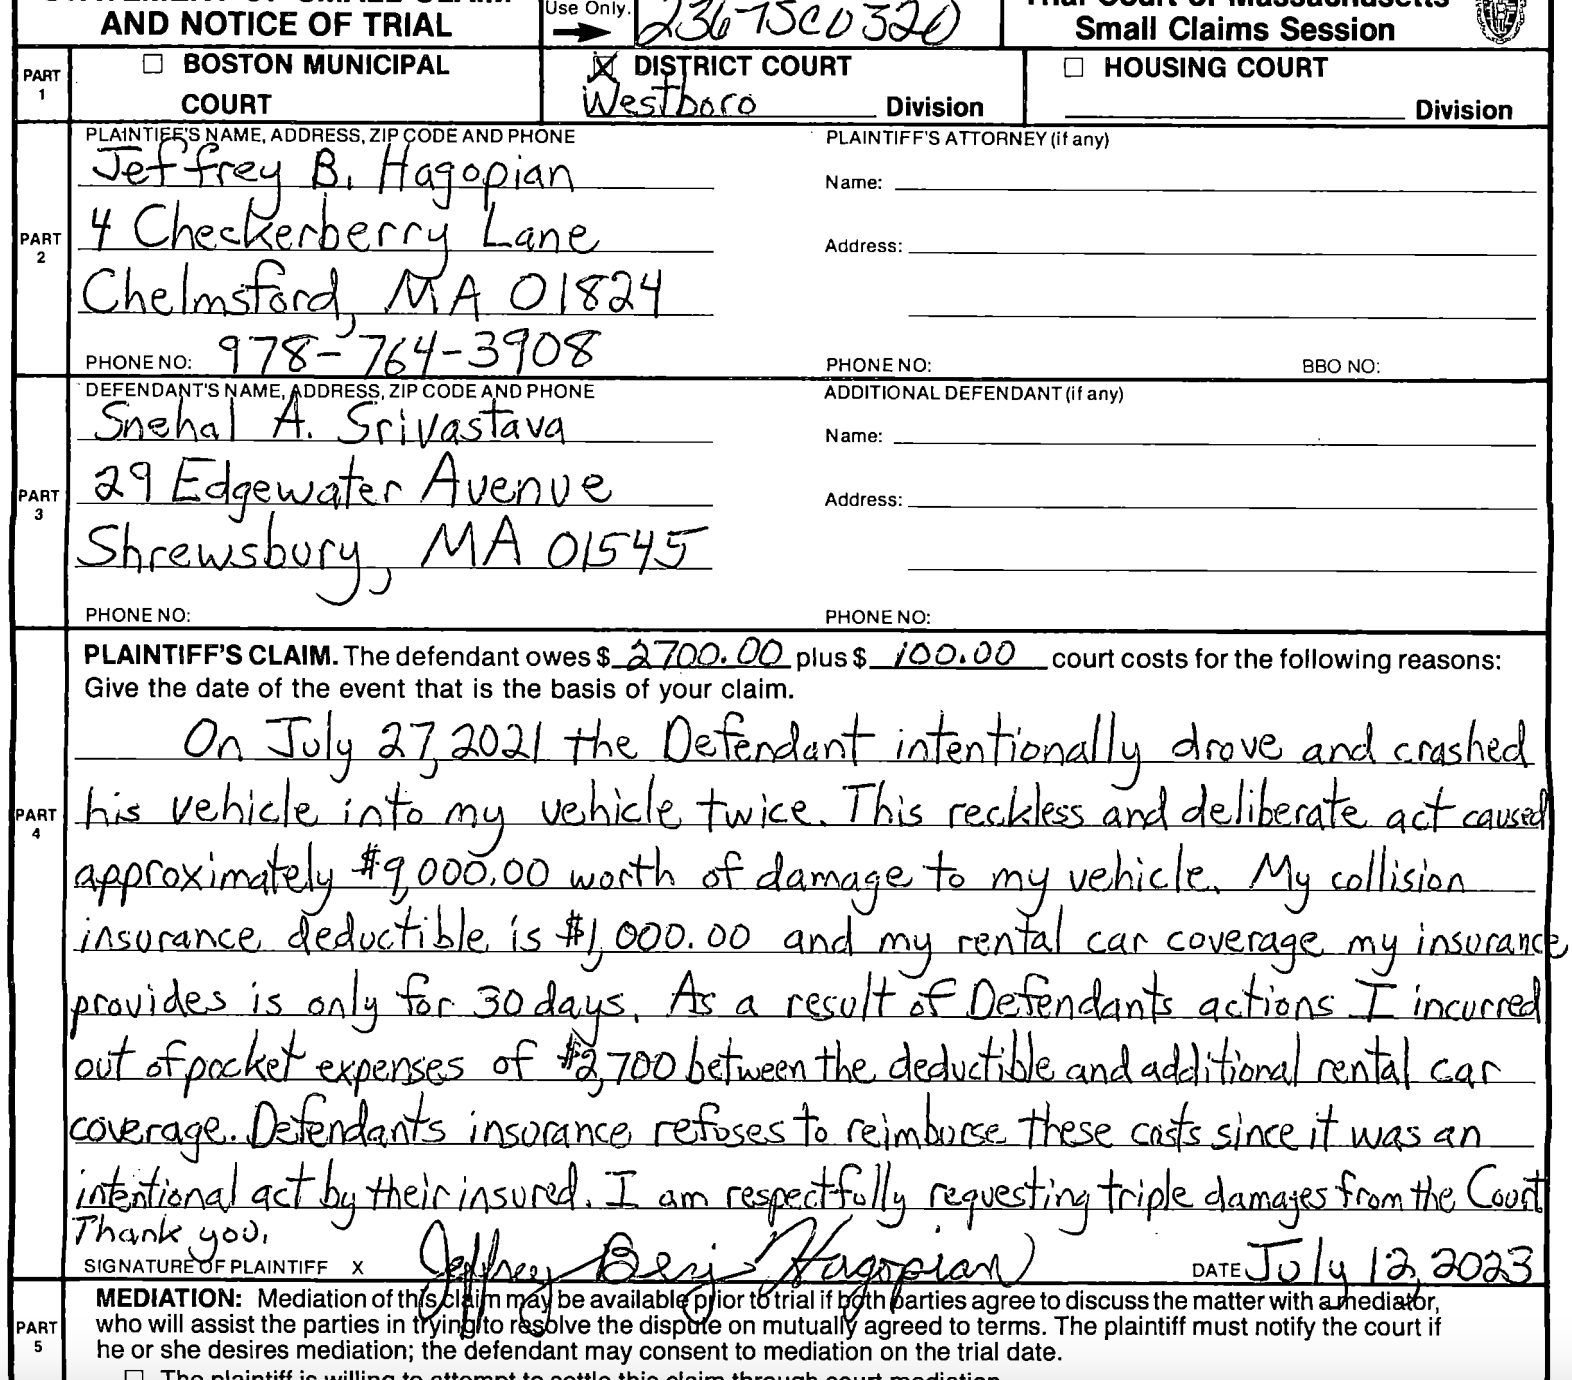 AND NOTICE OF TRIAL
Use Only.
2367SC0320
Trial Court of Massachusetts
Small Claims Session
PART
1
☐ BOSTON MUNICIPAL
COURT
☒ DISTRICT COURT
Westboro Division
☐ HOUSING COURT
Division
PART
2
PLAINTIFF'S NAME, ADDRESS, ZIP CODE AND PHONE
Jeffrey B. Hagopian
4 Checkerberry Lane
Chelmsford, MA 01824
PHONE NO: 978-764-3908
PLAINTIFF'S ATTORNEY (if any)
Name:
Address:
PHONE NO: BBO NO:
PART
3
DEFENDANT'S NAME, ADDRESS, ZIP CODE AND PHONE
Snehal A. Srivastava
29 Edgewater Avenue
Shrewsbury, MA 01545
PHONE NO:
ADDITIONAL DEFENDANT (if any)
Name:
Address:
PHONE NO:
PART
4
PLAINTIFF'S CLAIM. The defendant owes $ 2700.00 plus $ 100.00 court costs for the following reasons:
Give the date of the event that is the basis of your claim.
On July 27, 2021 the Defendant intentionally drove and crashed
his vehicle into my vehicle twice. This reckless and deliberate act caused
approximately $9,000.00 worth of damage to my vehicle. My collision
insurance deductible is $1,000.00 and my rental car coverage my insurance
provides is only for 30 days. As a result of Defendants actions I incurred
out of pocket expenses of $2,700 between the deductible and additional rental car
coverage. Defendants insurance refuses to reimburse these costs since it was an
intentional act by their insured. I am respectfully requesting triple damages from the Court
Thank you.
SIGNATURE OF PLAINTIFF X Jeffrey Benj Hagopian DATE July 12, 2023
PART
5
MEDIATION: Mediation of this claim may be available prior to trial if both parties agree to discuss the matter with a mediator,
who will assist the parties in trying to resolve the dispute on mutually agreed to terms. The plaintiff must notify the court if
he or she desires mediation; the defendant may consent to mediation on the trial date.
☐ The plaintiff is willing to attempt to settle this claim through court mediation.